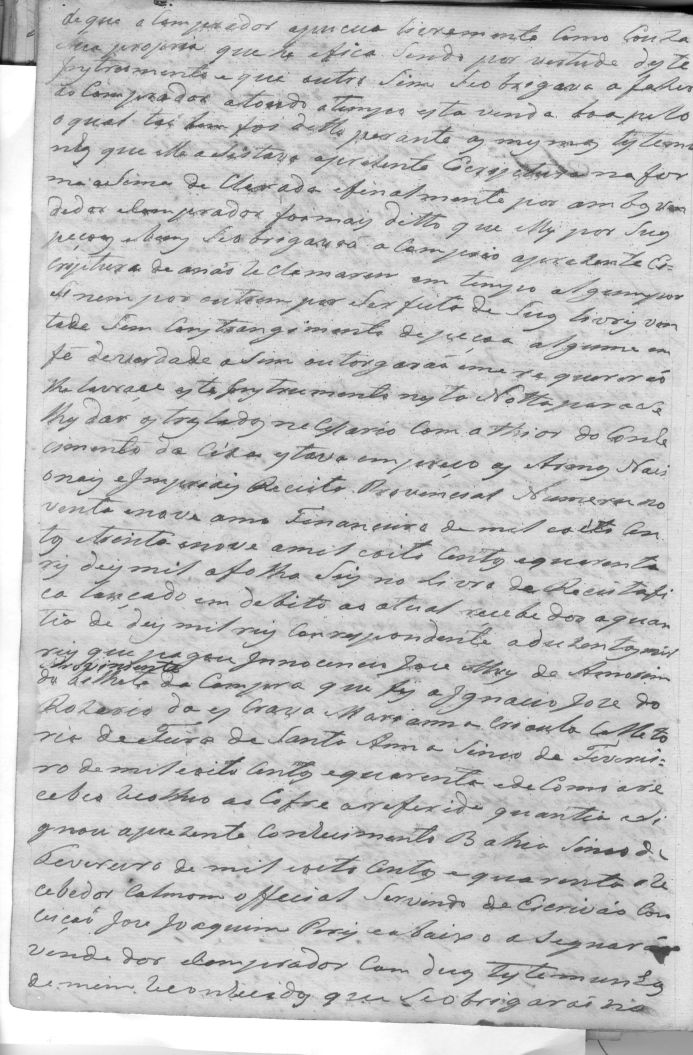 de que o comprador apucua livremente como couza
sua propria que he e fica sendo por vertude deste
Instromento e que outro sim se obrigava a fazer
ao Comprador a todo o tempo esta venda boa pelo
o qual foi ditto perante as mesmas testemu
nhas que elle a seitava a prezente Escriptura na for
ma a Sima de Clarada e finalmente por ambos ven
dedor e Comprador foi mais ditto que elles por suas
peçoas e bens se obrigavaõ a Comprir a prezente Es-
criptura de anaõ reclamarem em tempo algum por
si nem por outrem por ser feita de suas livres von
tade sem Constrangimento de peçoa alguma em
fé de verdade asim outorgaraõ e me requereraõ
lhe lavrace este Instrumento nesta Notta para se
lhes dar os treslados neCesario Com o thior do Conhe
cimento da Ciza estava empreço as Armas Naci
onais e Imperiais Receita Provincial Numero no
venta e nove anno Financeiro de mil e oito cen
tos e trinta e nove a mil e oito Centos e quarenta
reis des mil a folha Seis no Livro da Receita fi
ca lançado em debito ao atual recebedor a quan
tia de des mil reis Correspondente a duzentos mil
reis que pagou Innocencio Joze Alves de Amorim
do belhete da Compra que fes a Ignacio Joze do
Rozario da esCrava Marianna Crioula Colleto
ria da Feira de Santa Anna Sinco de Feverei-
ro de mil e oito Centos e quarenta e de Como are
cebeo recolheo ao Cofre a referida quantia asi
gnou a prezente Conhecimento Bahia Sinco de
Fevereiro de mil e oito Centos e quarenta o Re
cebedor Calmom official Servindo de Escrivaõ Con
ceiçaõ Joze Joaquim Peris e abaixo a Signaraõ
vendedor e Comprador Com duas testemunhas
de mim reconhecidos que se obrigaraõ na